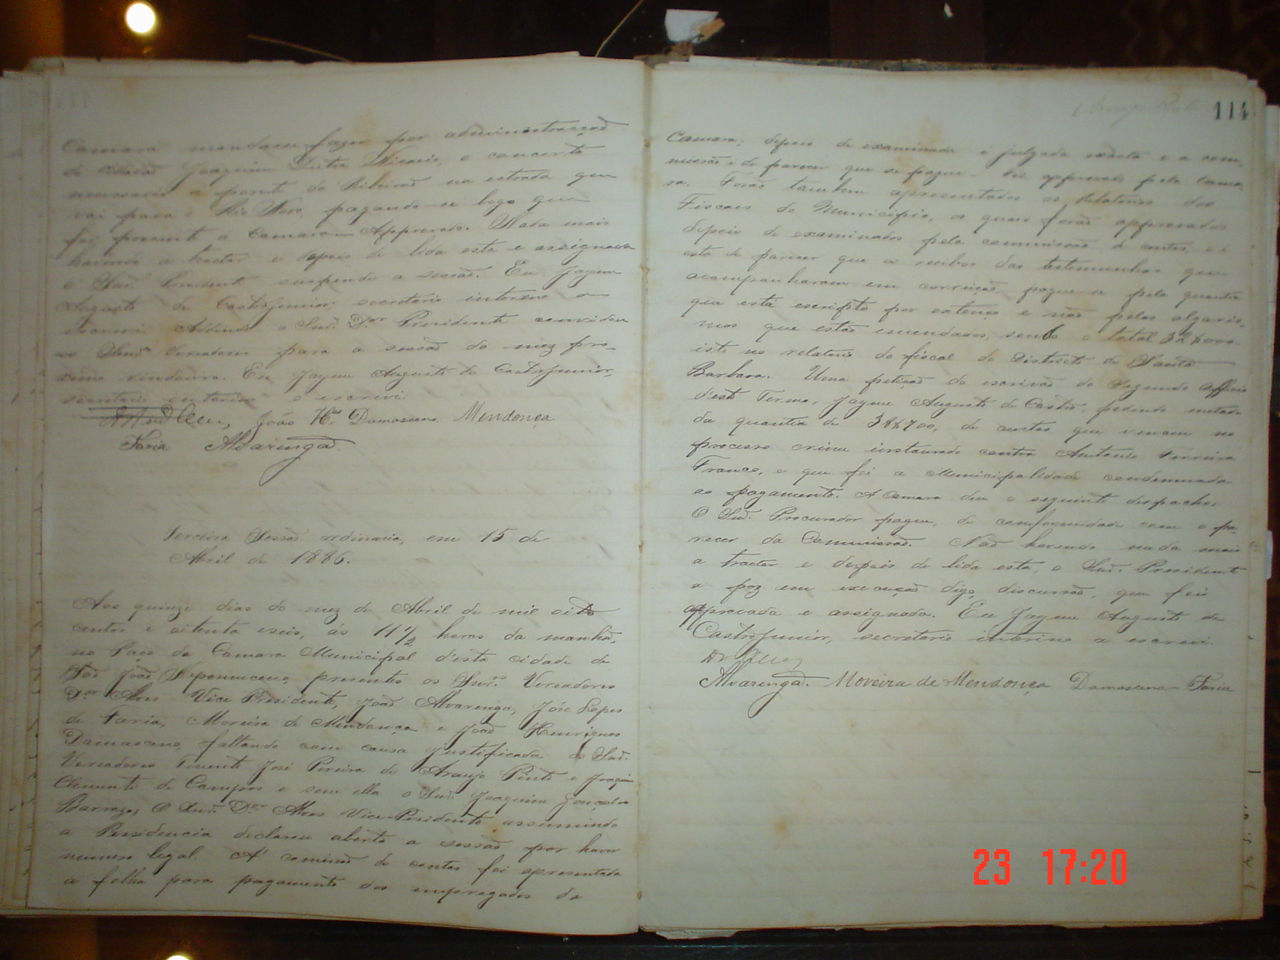 Camara mandara fazer por administração
do cidadão Joaquim Dutra Nicacio, o concerto
necessario a ponte do Ribeirão na estrada que
vai para o Rio Novo, pagando-se logo que
foi presente a Camara Approvado. Nada mais
havendo a tractar e depois de lida esta e assignada
o Snr. Presidente suspende a sessão. Eu Jayme
Augusto de Castro Junior, secretario interino o
escrevi. Adindo o Snr. Dor Presidente convidou
os Snres Vereadores para a sessão do mez pro-
ximo vindouro. Eu Jayme Augusto de Castro Junior,
secretario interino o escrevi.
João Hes Damasceno Mendonca
Faria Alvarenga
Terceira Sessão ordinaria, em 15 de
Abril de 1886.
Aos quinze dias do mez de Abril de mil oito
centos e oitenta e seis, ás 11 1/2 horas da manhã,
no Paço da Camara Municipal d'esta cidade de
São João Nepomuceno, presentes os Snres Vereadores
Dor Alves Vice Presidente, João Alvarenga, José Lopes
de Faria, Moreira de Mendonça e João Henriques
Damasceno, faltando com causa justificada os Snrs.
Vereadores Tenente José Pereira de Araujo Pinto e Joaquim
Clemente de Campos e sem ella o Snr. Joaquim Gonçalves
Barroso, O Snr. Dor Alves Vice-Presidente assumindo
a Presidencia declarou aberta a sessão por haver
numero legal. A' comissão de contas foi apresentada
a folha para pagamento dos empregados da
114
Camara; depois de examinada e julgada exacta e a com-
missão é de parecer que se pague. Foi approvado pela Cama-
ra. Forão tambem apresentados os relatorios dos
Fiscaes do Municipio, os quaes forão approvados
depois de examinados pela commissão de contas, e
esta de parecer que os recibos das testemunhas que
acompanharam em correição, pague-se pela quantia
que está escripta por extenso e não pelos algaris-
mos que estão emendados, sendo o total
isto no relatorio do fiscal do Districto de Santa
Barbara. Uma petição do escrivão do Segundo officio
d'este Termo, Jayme Augusto de Castro, pedindo metade
da quantia de 38$700, de custas que venceu no
processo crime instaurado contra Antonio Ferreira
Franco, e que foi a Municipalidade condemnada
ao pagamento. A Camara deu o seguinte despacho.
O Snr. Procurador pague, de conformidade com o pa-
recer da Commissão. Não havendo nada mais
a tractar e depois de lida esta, o Snr. Presidente
a poz em execução digo, discussão, que foi
approvada e assignada. Eu Jayme Augusto de
Castro Junior, secretario interino a escrevi.
Dr Alves
Alvarenga. Moreira de Mendonca Damasceno Faria
23 17:20